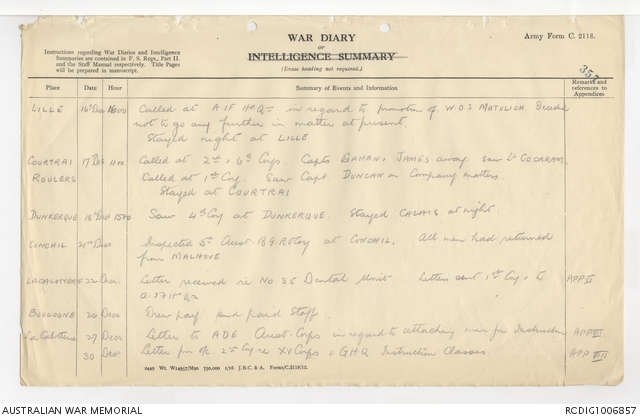 WAR DIARY
or
INTELLIGENCE SUMMARY
(Erase heading not required.)
Army Form C. 2118.
Instructions regarding War Diaries and Intelligence
Summaries are contained in F. S. Regs., Part II.
and the Staff Manual respectively. Title Pages
will be prepared in manuscript.
Place Date Hour Summary of Events and Information Remarks and references to Appendices
LILLE 16th Dec 1600 Called at A.I.F. HdQrs in regard to promotion of W.O.I. MATULICH. Decided
not to go any further in matter at present.
Stayed night at LILLE
COURTRAI 17 Dec 1100 Called at 2nd & 6th Coys. Capts & JAMES away saw Lt
ROULERS Called at 1st Coy. Saw Capt DUNCAN on Company matters.
Stayed at COURTRAI
DUNKERQUE 18 Dec 1500 Saw 4th Coy at DUNKERQUE. Stayed CALAIS at night
CONCHIL 21st Dec Inspected 5th Aust. B.G.R.O.Coy at CONCHIL. All men had returned
from
22 Dec Letter received re No 35 Dental Unit Letters sent 1st Coy & to APP
BOULOGNE 20 Dec Drew pay and paid Staff.
27 Dec Letter to ADE Aust-Corps in regard to attaching men for Instruction APP
30 Dec Letter from O/C 2nd Coy re XV Corps & GHQ Instruction Classes. APP
AUSTRALIAN WAR MEMORIAL
RCDIG1006857